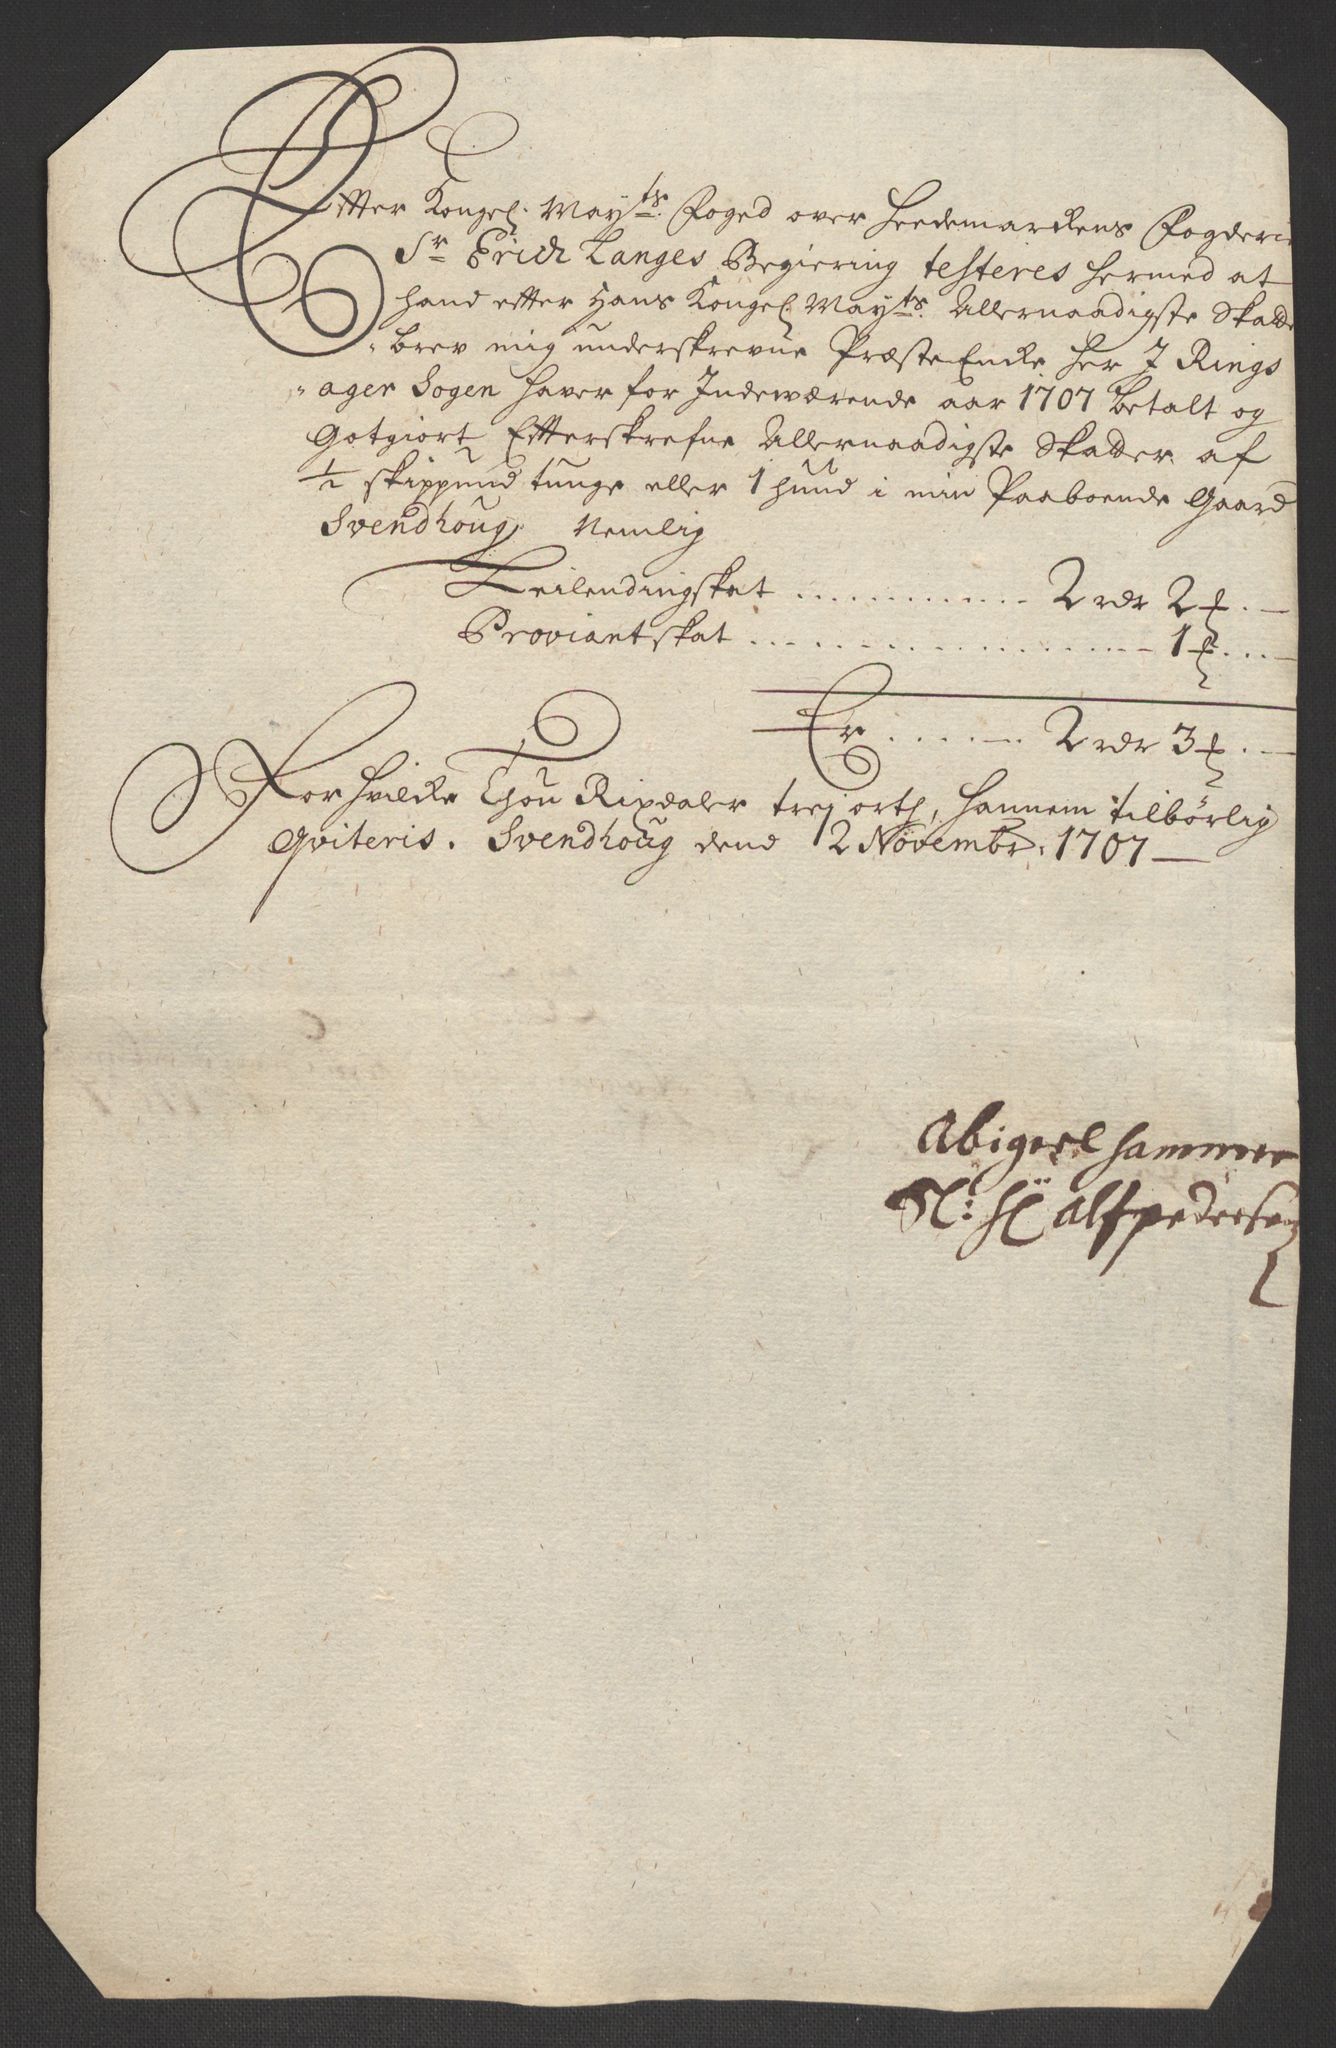 Efter Kongel. Mayts. Foged over Heedemarckens Fogderie
Sr Erich Langes Begiering testeres hermed at
hand efter Hans Kongel. Mayts. Allernaadigste Skatte
-brev mig underskrevne Præste Encke her J Rings
-ager Sogen haver for Indeværende aar 1707 betalt og
Gotgiort Efterskrefne Allernaadigste Skatter af
1/2 skippund tunge eller 1 hund i min Paaboende Gaard
Svendhoug, Nemlig
Leilendingskat .......... 2 rdr 2 ₰ . —
Proviantskat .......... 1 ₰ . . . —
Er ...... 2 rdr 3 ₰ . —
For hvilcke Thou Rixdaler trej ort, hannem tilbørlig
Qviteris. Svendhoug dend 12 Novembr. 1707 —
Abigael Hammer
Sl: H: Alf pedersens